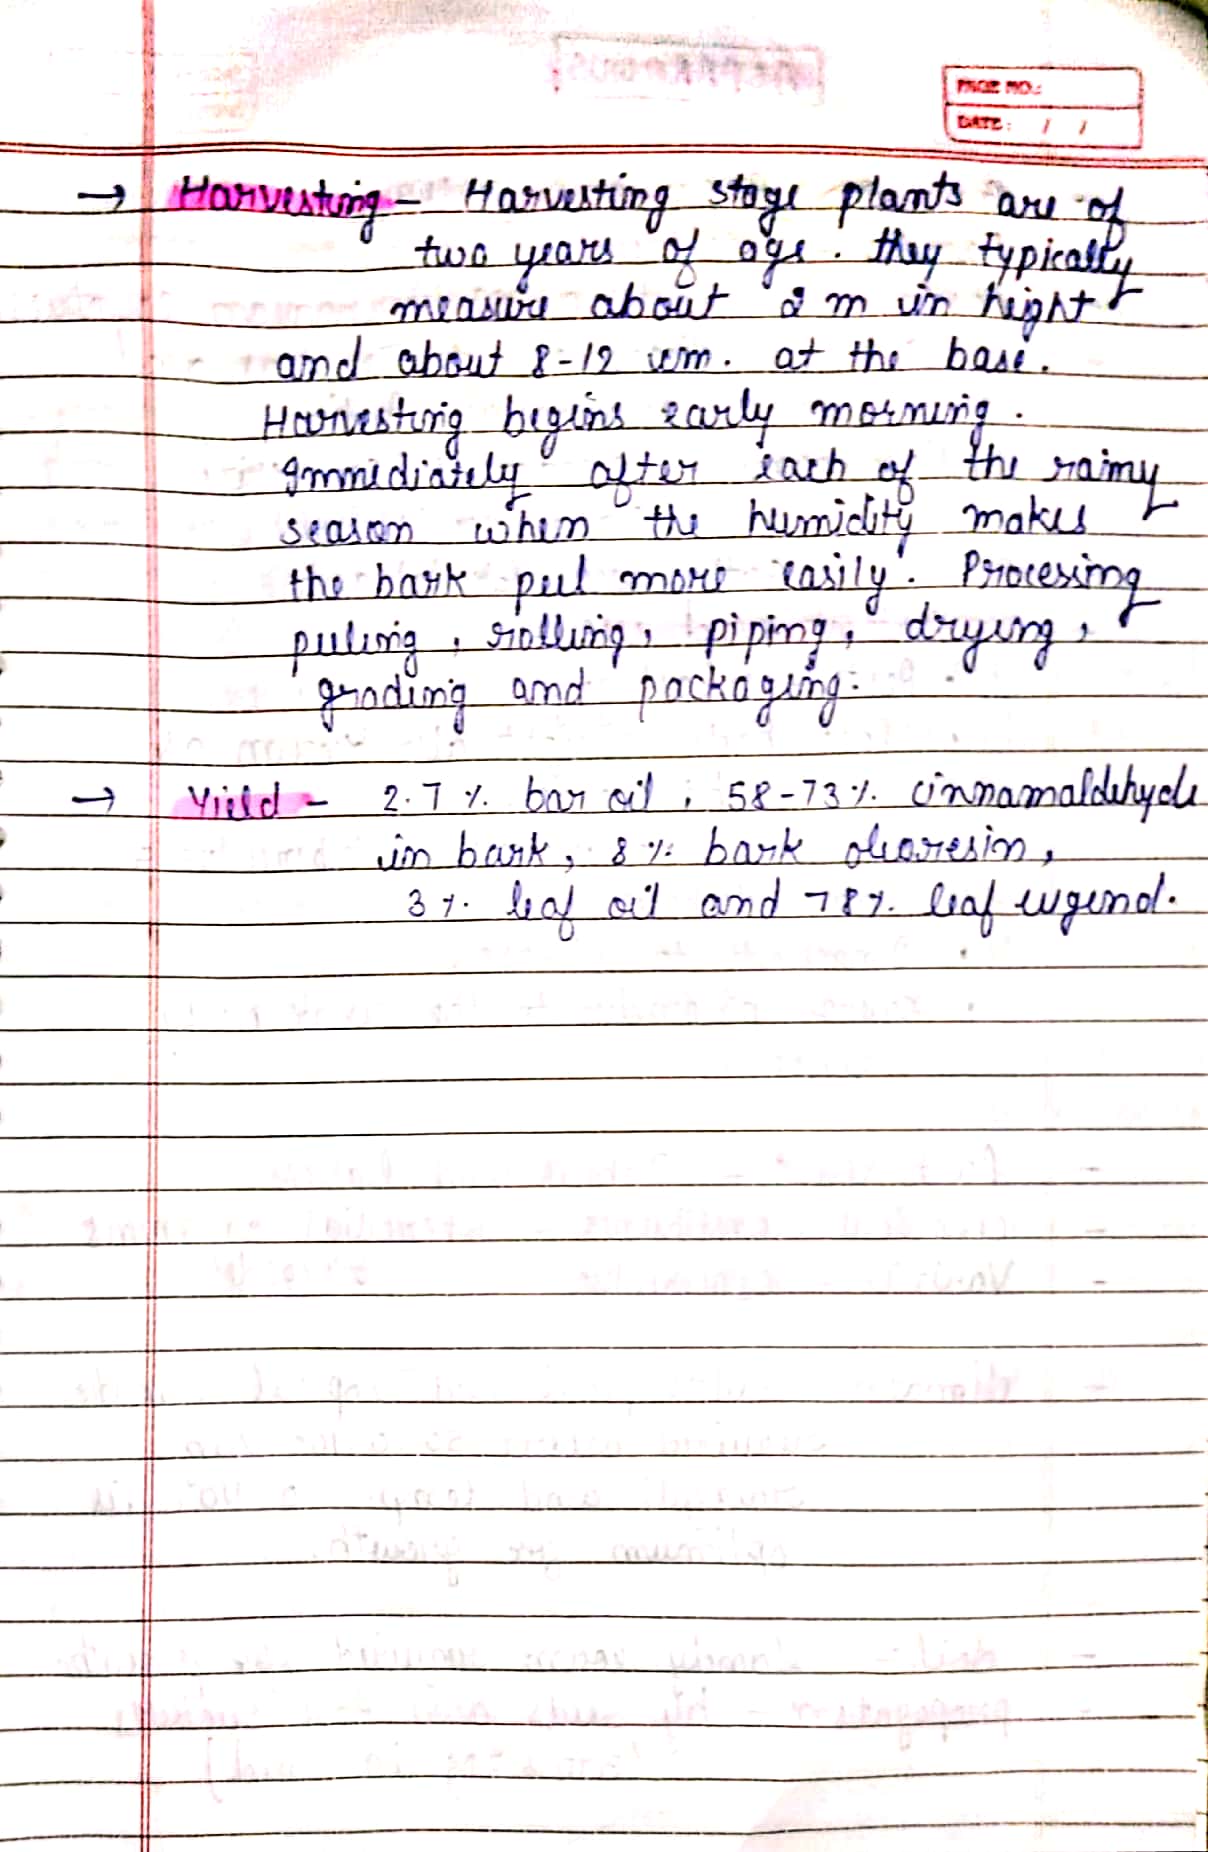 PAGE NO.:
DATE: / /
→ Harvesting - Harvesting stage plants are of
two years of age. they typically
measure about 2 m in height
and about 8-12 cm. at the base.
Harvesting begins early morning.
Immediately after each of the rainy
season when the humidity makes
the bark peel more easily. Processing
peeling, rolling, piping, drying,
grading and packaging.
→ Yield - 2.7 %. bar oil, 58-73 %. cinnamaldehyde
in bark, 8 %. bark oleoresin,
3 %. leaf oil and 78 %. leaf eugenol.